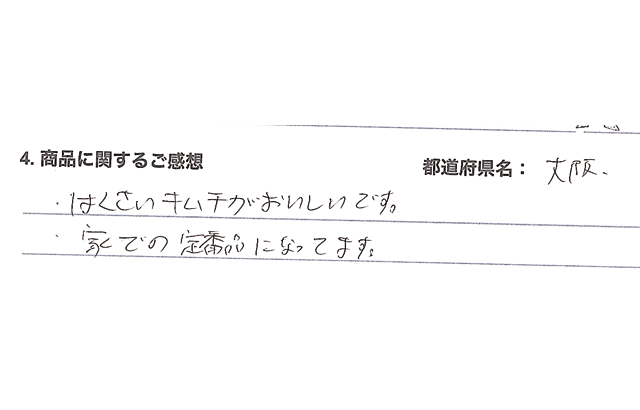 4. 商品に関するご感想
都道府県名： 大阪.
・はくさいキムチがおいしいです。
・家での定番品になってます。